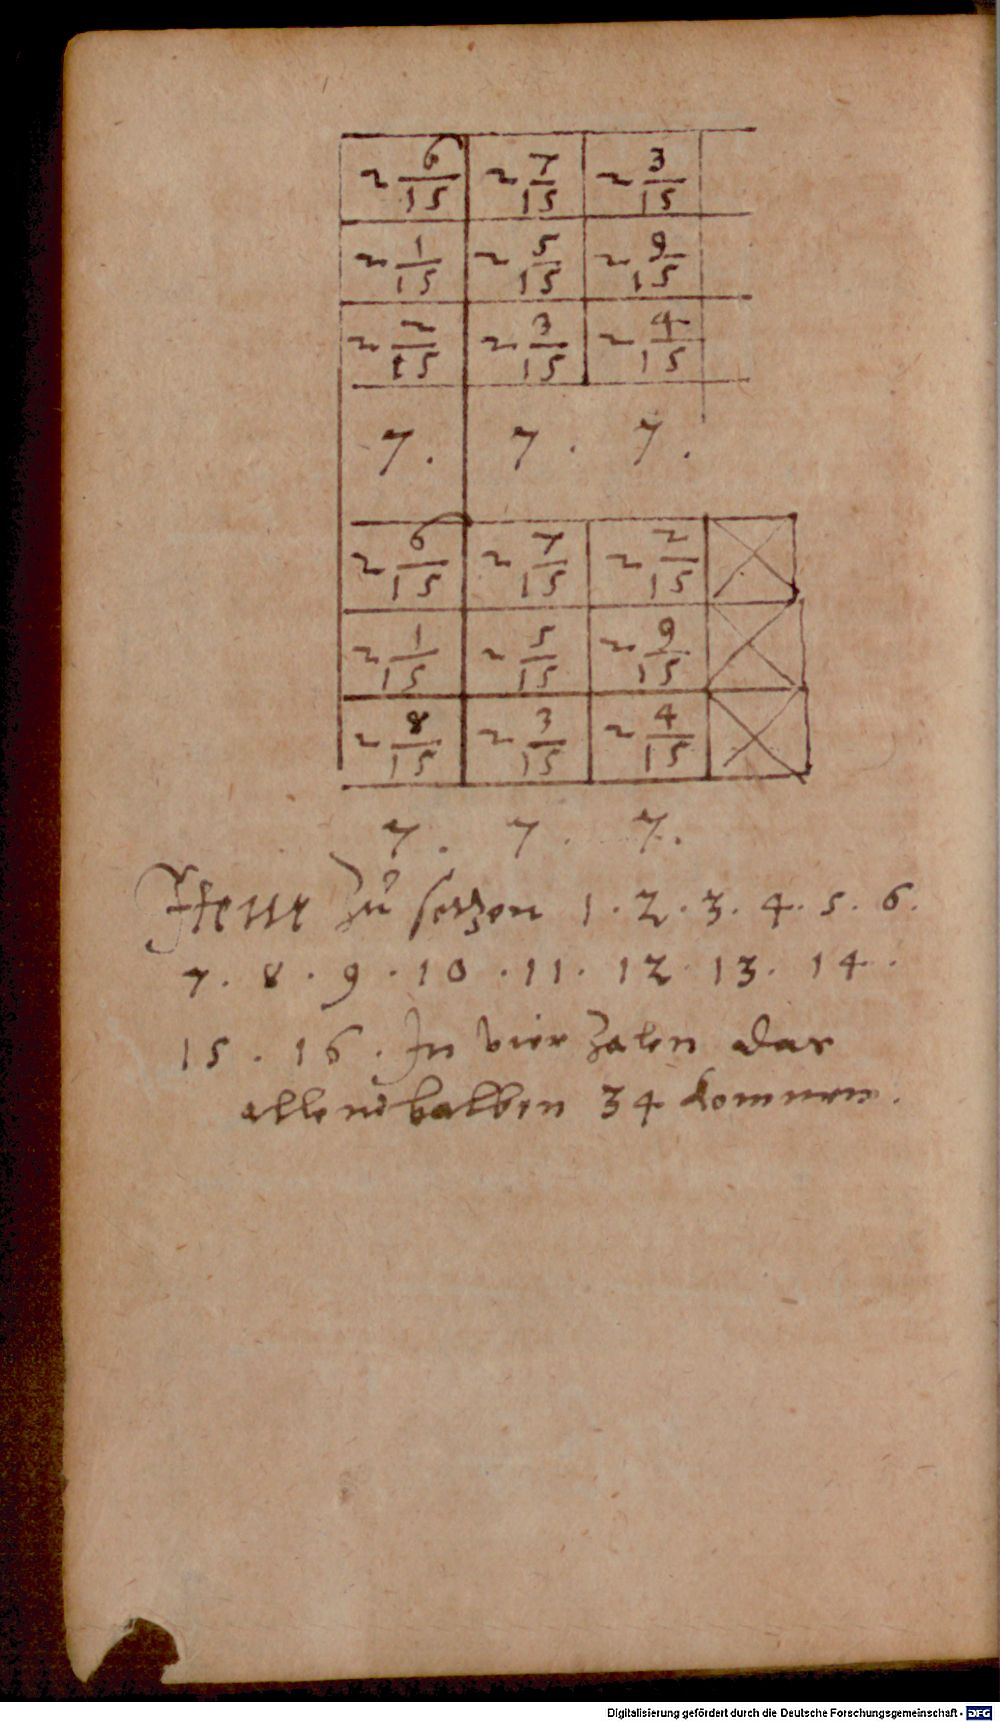 2 6/15 2 7/15 2 3/15
2 1/15 2 5/15 2 9/15
2 2/15 2 3/15 2 4/15
7. 7. 7.
2 6/15 2 7/15 2 2/15
2 1/15 2 5/15 2 9/15
2 8/15 2 3/15 2 4/15
7. 7. 7.
Item Zu setzen 1. 2. 3. 4. 5. 6.
7. 8. 9. 10. 11. 12. 13. 14.
15. 16. In vier Zalen das
allenthalben 34 kommen.
Digitalisierung gefördert durch die Deutsche Forschungsgemeinschaft - DFG